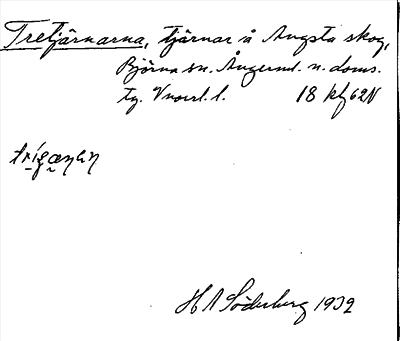 Tretjärnarna, tjärnar å Angsta skog,
Björna sn. Ångerml. n. doms.
tg. Vnorrl. l. 18 kf 62 N
H A Söderberg 1932